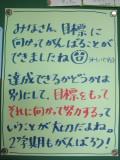 みなさん、目標に
向かってがんばることが
できましたね
達成できるかどうかは
別にして、目標をもって
それに向かって努力するって
いうことが大切だよね。
2学期もがんばろう!